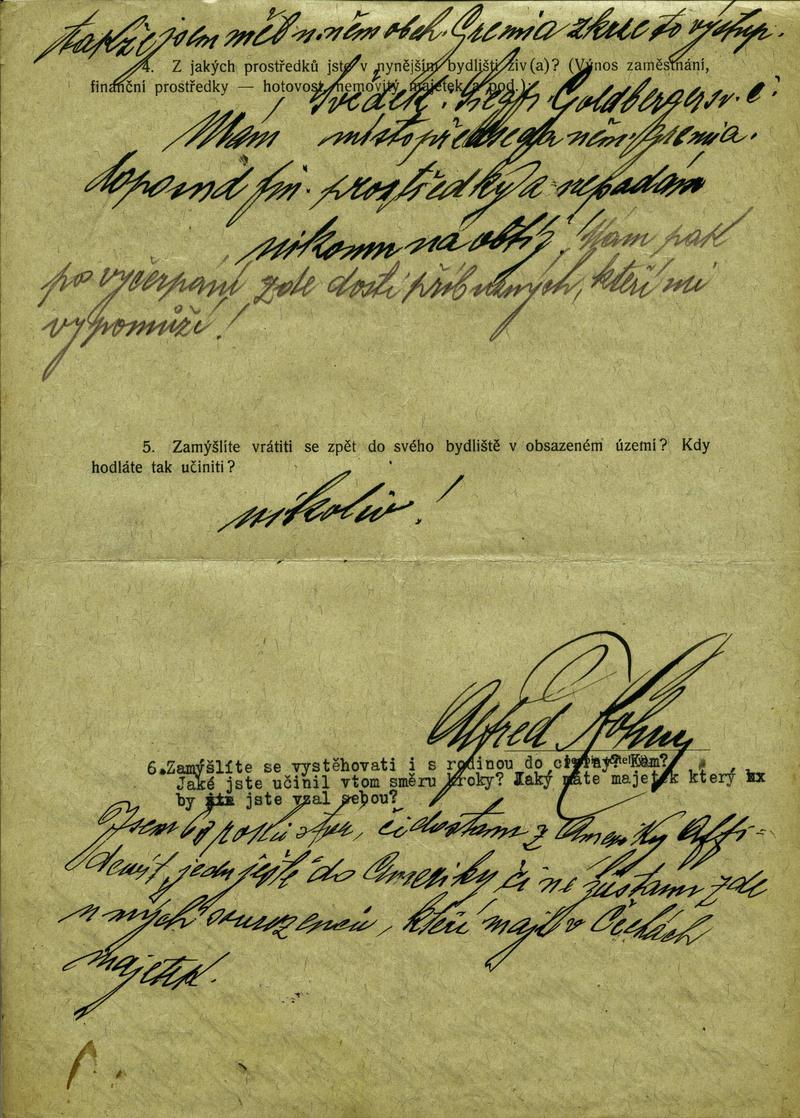 takže jsem měl u něm. obch. Gremia zkrze to výstup.
4. Z jakých prostředků jste v nynějším bydlišti živ(a)? (Výnos zaměstnání,
finanční prostředky — hotovost, nemovitý majetek a pod.)
Svědek: Siegfr. Goldberger sv. č.
místopředseda něm. gremia.
Mám
doposud fin. prostředky a nepadám
nikomu na obtíž! Mám pak
po vyčerpání zde dosti příbuzných, kteří mi
vypomůží!
5. Zamýšlíte vrátiti se zpět do svého bydliště v obsazeném území? Kdy
hodláte tak učiniti?
nikoliv!
Alfred
6. Zamýšlíte se vystěhovati i s rodinou do ciziny? Kam?
Jaké jste učinil vtom směru kroky? Jaký máte majetek který
by jste vzal sebou?
Jsem roků star, či dostanu z Ameriky Affi-
dewit, jedu ještě do Ameriky či ne zůstanu zde
u mých sourozenců, kteří mají v Čechách
majetek.